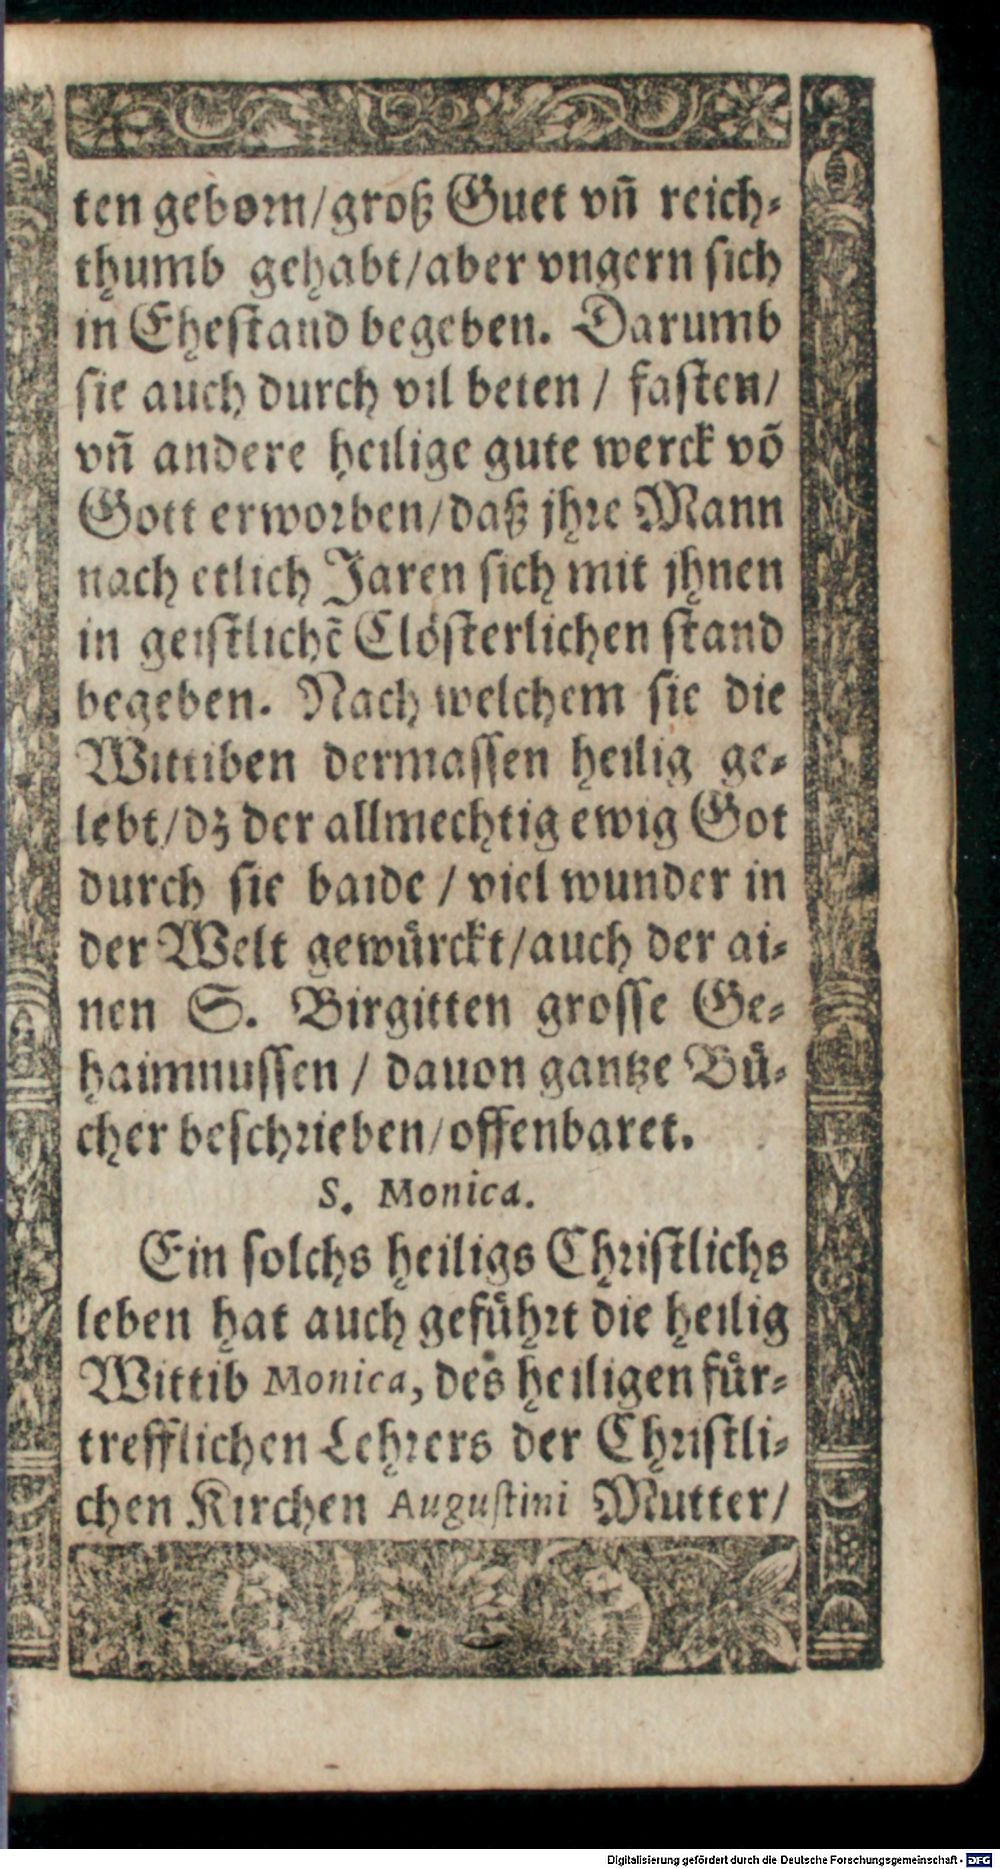 ten geborn/groß Guet vñ reich-
thumb gehabt/aber vngern sich
in Ehestand begeben. Darumb
sie auch durch vil beten / fasten/
vñ andere heilige gute werck võ
Gott erworben/daß jhre Mann
nach etlich Jaren sich mit jhnen
in geistlichẽ Clösterlichen stand
begeben. Nach welchem sie die
Wittiben dermassen heilig ge-
lebt/dz der allmechtig ewig Got
durch sie baide / viel wunder in
der Welt gewürckt/auch der ai-
nen S. Birgitten grosse Ge-
haimnussen / dauon gantze Bü-
cher beschrieben/offenbaret.
S. Monica.
Ein solchs heiligs Christlichs
leben hat auch geführt die heilig
Wittib Monica, des heiligen für-
trefflichen Lehrers der Christli-
chen Kirchen Augustini Mutter/
Digitalisierung gefördert durch die Deutsche Forschungsgemeinschaft - DFG